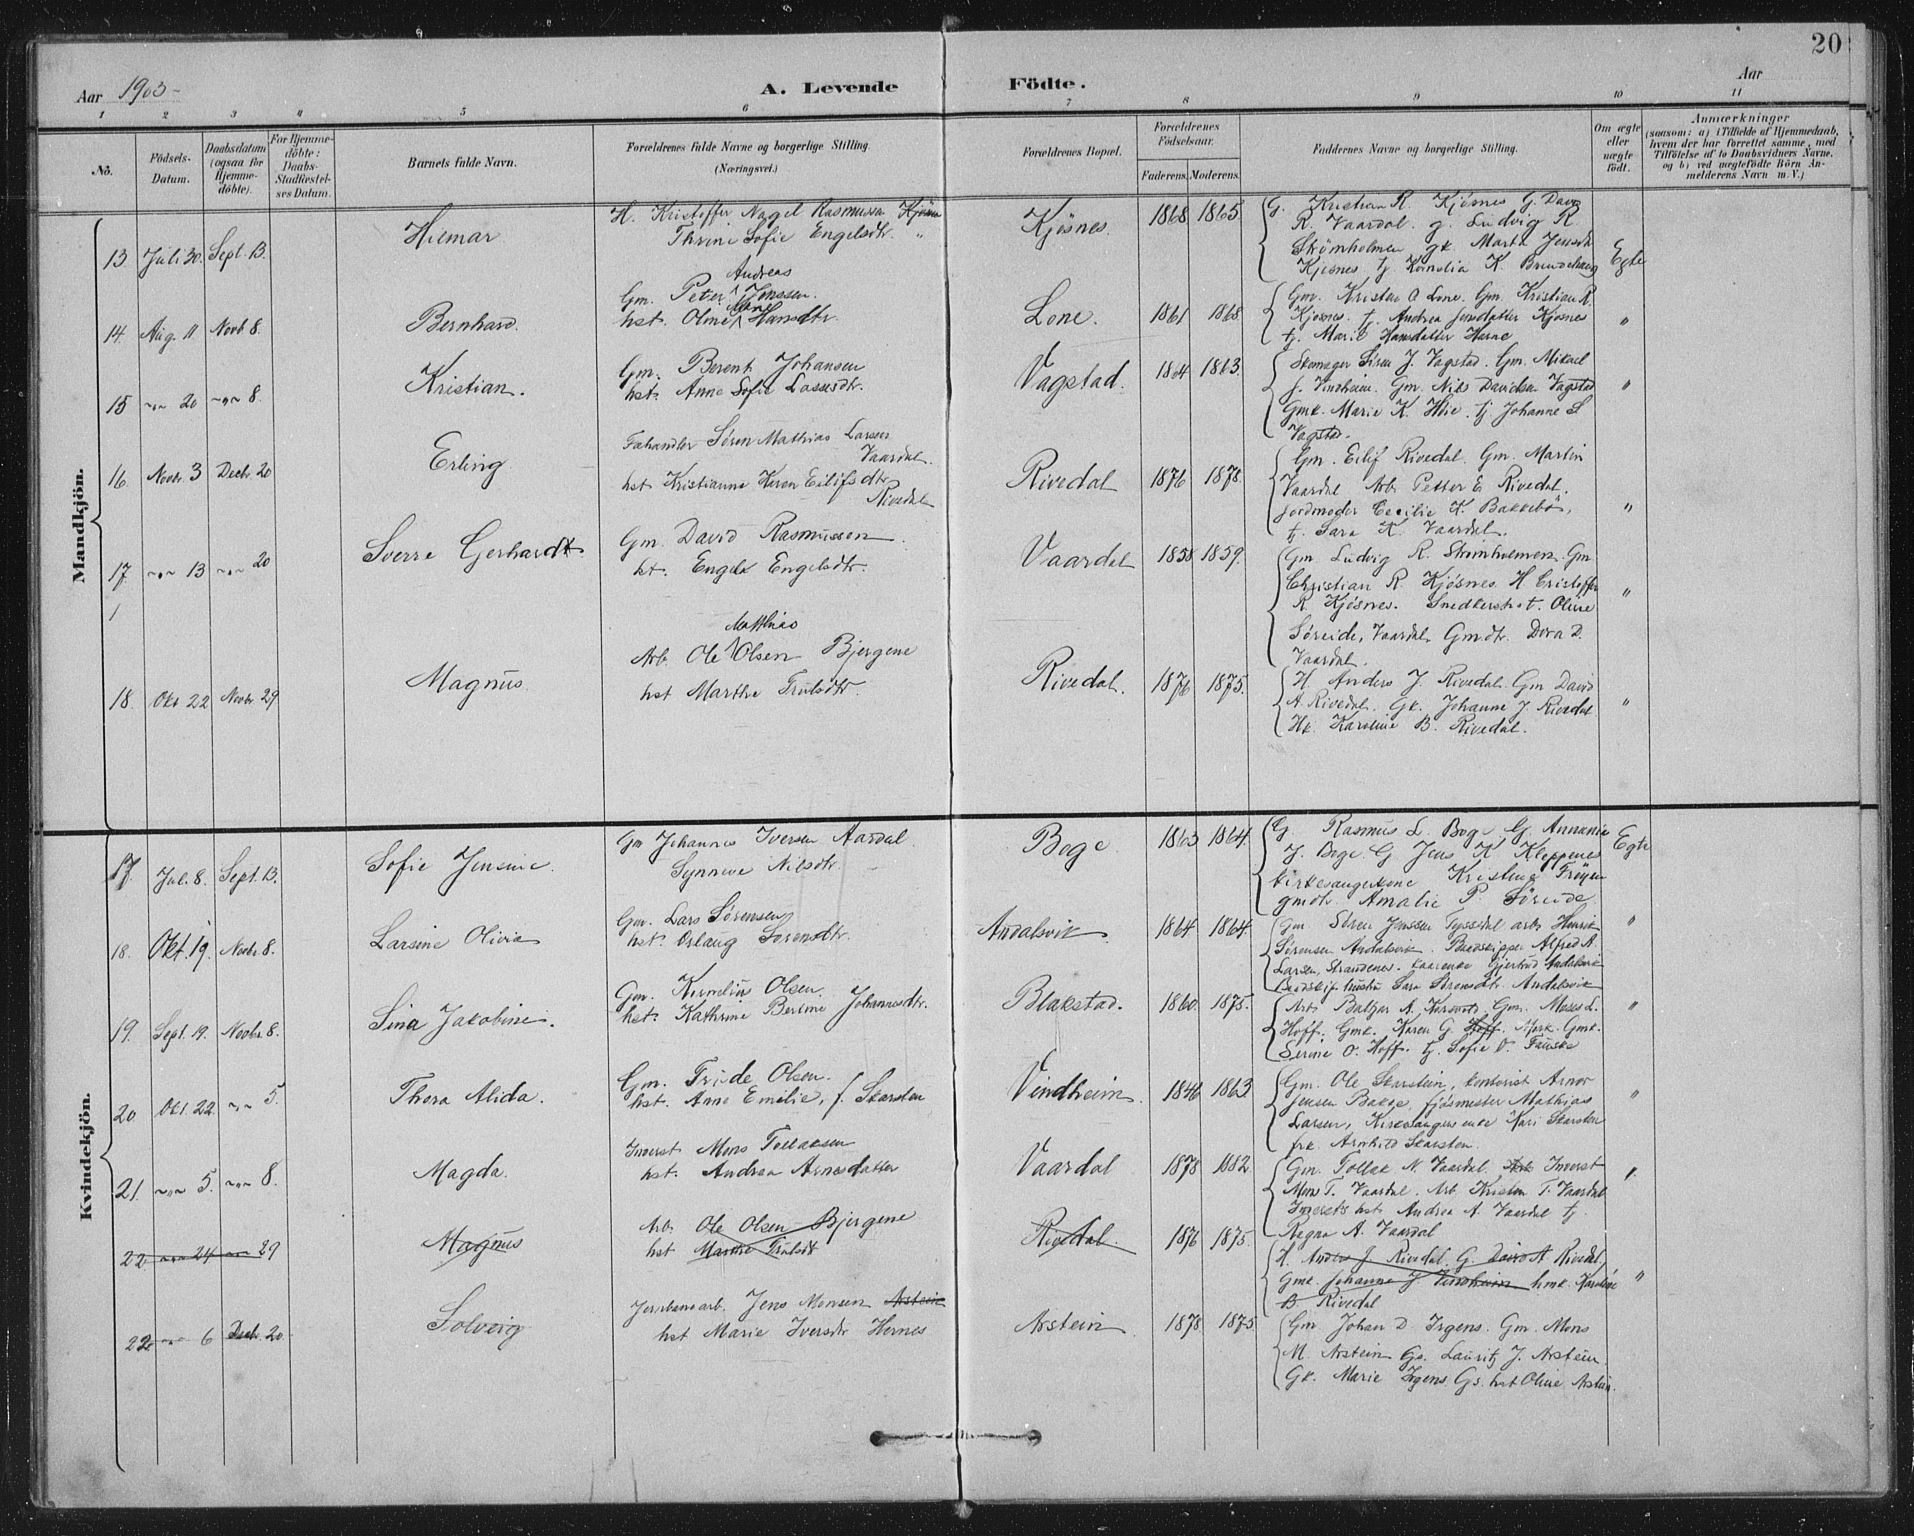 20
Aar 1903- A. Levende Födte. Aar
1 2 3 4 5 6 7 8 9 10 11
No. Födsels-Datum. Daabsdatum (ogsaa för Hjemmedöbte). For Hjemmedöbte: Daabs-Stadfæstelses Datum. Barnets fulde Navn. Forældrenes fulde Navne og borgerlige Stilling. (Næringsvei.) Forældrenes Bopæl. Forældrenes Födselsaar. Faderens. Moderens. Faddernes Navne og borgerlige Stilling. Om ægte eller uægte födt. Anmærkninger (saasom: a) i Tilfælde af Hjemmedaab, hvem der har forrettet samme, med Tilföielse af to Daabsvidners Navne, og b) ved uegtefödte Börn Anmelderens Navn m. V.)
Mandkjön.
13 Juli 30. Sept. 13. Hilmar H. Kristoffer Nagel Rasmussen Kjösnes Kjösnes. 1868 1865 G. Kristian R. Kjösnes G. David
Thrine Sofie Engelsdtr. " R. Vaardal. g. Ludvig R.
Strömholmen gk. Marta Jensdt
Kjösnes tj Kornelia K. Egte
14. Aug. 11 Novb 8. Bernhard. Gm. Peter Andreas Jonssen. Lone. 1861 1868 Gm. Kristen O Lone. Gm. Kristian R.
hst. Oline Hansdtr. Kjösnes. tj. Andrea Jensdatter Kjösnes "
tj. Marie Hansdatter
15 -"- 20 -"- 8. Kristian. Gm. Berent Johansen Vagstad. 1863. Skomager Sören J. Vagstad. Gm. Mikael
hst. Anne Sofie Lassesdtr. J. Vindheim. Gm. Nils Davidsen Vagstad "
Gmk. Marie K. tj. Johanne S.
Vagstad.
16. Novbr. 3 Decbr. 20 Erling. Fæhandler Sören Mathias Larsen Vaardal. Rivedal 1876 1878. Gm. Eilif Rivedal. Gm. Martin
hst Kristianne Eilifsdtr. Rivedal Vaardal Arb. Petter E. Rivedal.
Jordmoder Cecilie K. Bakkebö, "
tj. Sara K. Vaardal.
17. -"- 13 -"- 20 Sverre Gerhardt Gm. David Rasmussen. Vaardal 1858 1859. Gm. Ludvig R. Strömholmen. Gm.
hst. Engelsdtr. Christian R. Kjösnes. H. Cristoffer
R. Kjösnes. Oline "
1 Söreide, Vaardal. Gmdtr. Dora D.
Vaardal.
18. Okt 22 Novbr. 29 Magnus. Arb. Ole Mathias Olsen Bjergene Rivedal. 1876 1875. H. Anders J. Rivedal. Gm David
hst Marthe Trulsdtr. A. Rivedal. Gk. Johanne J. Rivedal "
Hk. Karoline B. Rivedal.
Kvindekjön.
17. Jul. 8. Sept. 13. Sofie Jensine. Gm Johannes Iversen Aardal Boge 1863 1864. G. Rasmus L. Boge. G. Annanie Egte
Synneve Nilsdtr. J. Boge. G. Jens K. Kleppenes
Kirkesangerkone Kristine Fröyen
gmdtr. Amalie P. Söreide.
18. Okt. 19. Novbr. 8. Larsine Olivia Gm. Lars Sörensen Andalsvik 1864 1864. Gm Sören Jenssen Tyssedal arb. Henrik "
hst. Sörensdtr. Sörensen Andalsvik. Alfred A.
Larsen, Strandenes. Gjertrud Andalsvik
hustru Sara Sörensdtr. Andalsvik
19. Sept. 19. Novbr. 8. Sina Jakobine. Gm. Kornelius Olsen. Blakstad. 1860. 1875. Arb. Baltzar A. Gm. Moses L. "
hst. Kathrine Bertine Johannesdtr. Hoff. Gmk. Karen G. Hoff. Gmk.
Serine O. Hoff. tj. Sofie O.
20. Okt 22 -"- 5. Thora Alida. Gm. Olsen. Vindheim. 1846 1863 Gm. Ole Skarstein, kontorist Arnor
hst. Anne Emilie, f. Skarsten Jensen Bakke, Mathias "
Larsen, Kari Skarsten
frk. Arnhild Skarsten.
21. -"- 5. -"- 8. Magda. Inderst Mons Tollaksen Vaardal 1878 1882. Gm. Tollak N. Vaardal. Arb Inderst "
hst. Andrea Arnesdatter Mons T. Vaardal. Arb. Kristen T. Vaardal
Inderst's hst Andrea A. Vaardal tj.
Ragna A. Vaardal
22 -"- 24 -"- 29 Magnus Arb Ole Olsen Bjergene Rivedal 1876 1875. H. Anders J Rivedal. G. David A. Rivedal,
hst Marthe Trulsdt Gmk. Johanne J Vindheim hmk. Karoline "
B. Rivedal
22. -"- 6 Decbr. 20 Solveig Jernbanearb. Jens Monsen Arstein Arstein 1878 1875 Gm. Johan D. Irgens. Gm. Mons
hst Marie Iversdtr Hernes M. Arstein Gs. Lauritz J. Arstein
Gk. Marie Irgens Gs. hst Oline Arstein.